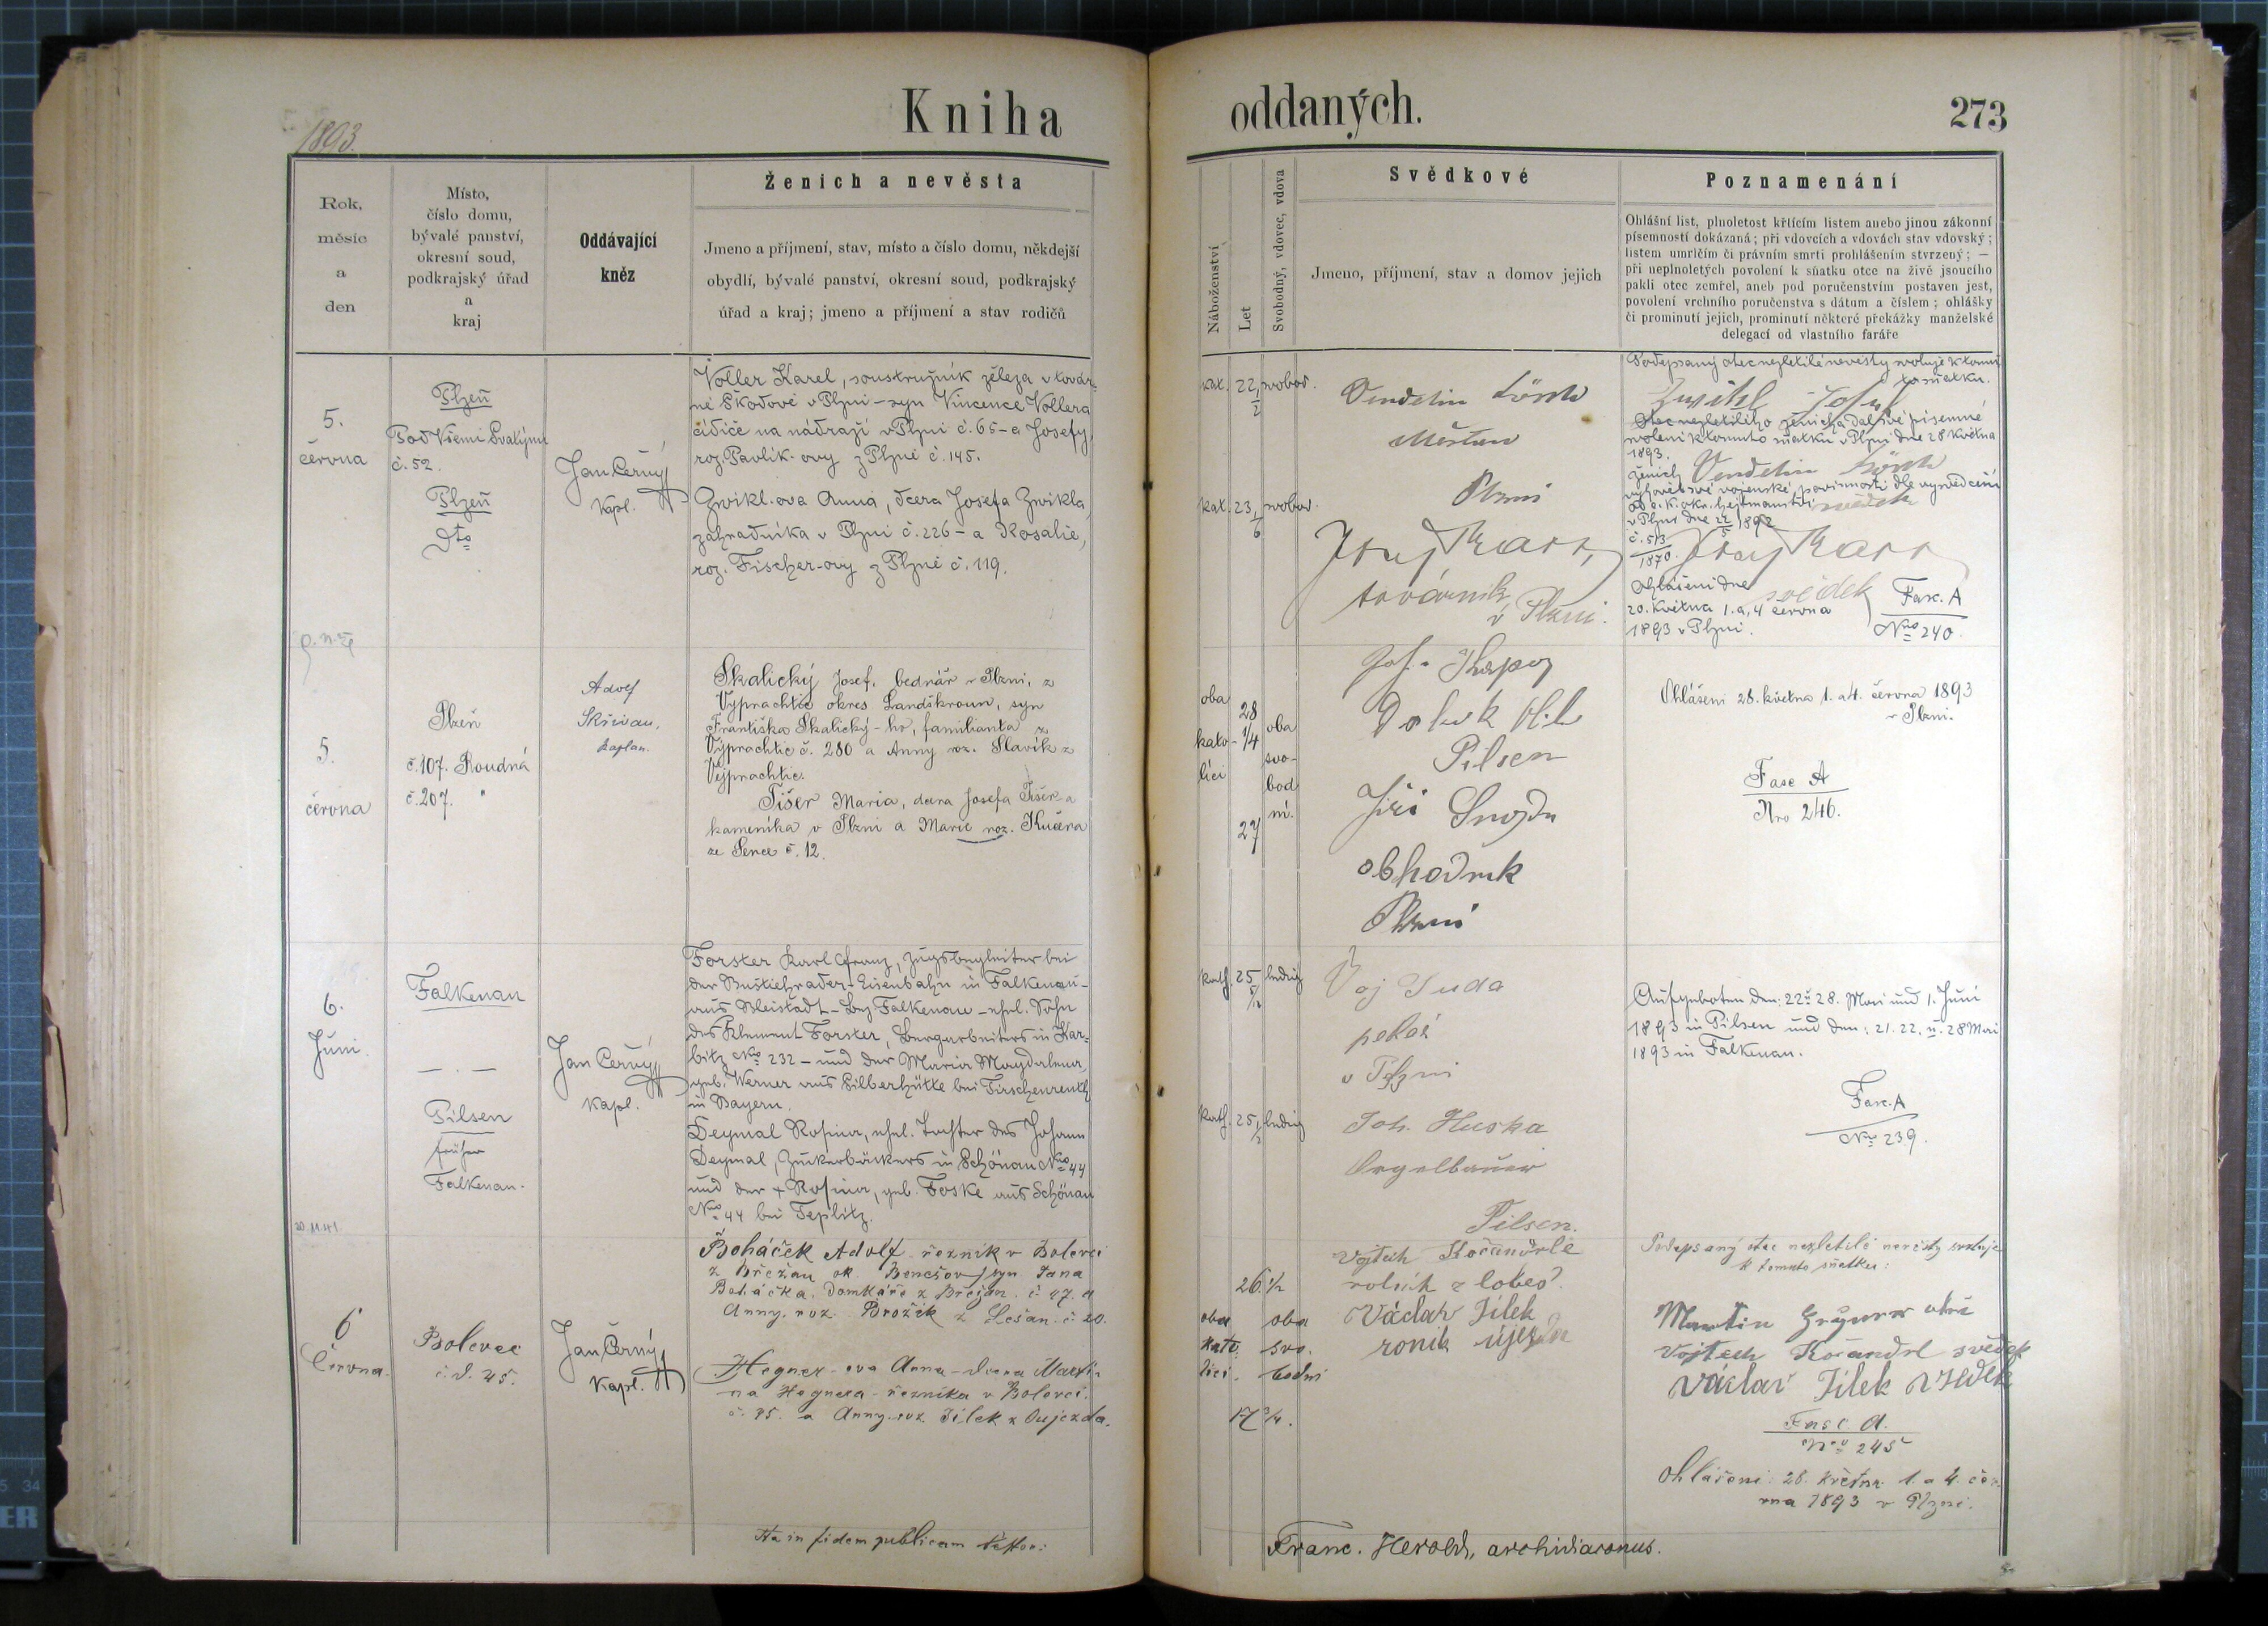 1893.
Kniha oddaných.
273
Rok,
měsíc
a
den
Místo,
číslo domu,
bývalé panství,
okresní soud,
podkrajský úřad
a
kraj
Oddávající
kněz
Ženich a nevěsta
Jmeno a příjmení, stav, místo a číslo domu, někdejší
obydlí, bývalé panství, okresní soud, podkrajský
úřad a kraj; jmeno a příjmení a stav rodičů
Náboženství
Let
Svobodný, vdovec, vdova
Svědkové
Jmeno, příjmení, stav a domov jejich
Poznamenání
Ohlášní list, plnoletost křtícím listem anebo jinou zákonní
písemností dokázaná; při vdovcích a vdovách stav vdovský;
listem umrlčím či právním smrti prohlášením stvrzený; —
při neplnoletých povolení k sňatku otce na živě jsoucího
pakli otec zemřel, aneb pod poručenstvím postaven jest,
povolení vrchního poručenstva s dátum a číslem; ohlášky
či prominutí jejich, prominutí některé překážky manželské
delegací od vlastního faráře
5.
června
Plzeň
Pod Všemi Svatými
č. 52.
Plzeň
dto
Jan Černý
Kapl.
Voller Karel, soustružník železa v továr-
ně Škodově v Plzni – syn Vincence Vollera
čidiče na nádraží v Plzni č. 65 – a Josefy,
roz. Pavlík-ovy z Plzně č. 145.
Zwikl-ova Anna, dcera Josefa Zwikla,
zahradníka v Plzni č. 226 – a Rosalie,
roz. Fischer-ovy z Plzně č. 119.
kat. 22 1/2 svobod.
kat. 23 1/6 svobod.
Vendelin
Měšťan
Plzni
Josef
továrník
v Plzni.
Podepsaný otec nezletilé nevěsty svoluje k tomu-
to sňatku.
Zwikl Josef
Otec nezletilého ženicha dal své písemné
svolení k tomuto sňatku v Plzni dne 28 května
1893.
ženich Vendelin
vyhověl své vojenské povinnosti dle vysvědčení
od c. k. okr. hejtmanství svědek
v Plzni dne 22/5 1893
č. 513/1870. Josef
Ohlášeni dne svědek
20. května 1. a, 4 června
1893 v Plzni.
Fasc. A
Nro 240.
5.
června
Plzeň
č. 107. Roudná
č. 207. "
Adolf
Skřivan,
kaplan.
Skalický Josef, bednář v Plzni, z
Výprachtic okres Landškroun, syn
Františka Skalický-ho, familianta z
Výprachtic č. 280 a Anny roz. Slavík z
Výprachtic.
Tišer Maria, dcera Josefa Tišer-a
kameníka v Plzni a Marie roz. Kučera
ze Sence č. 12.
oba
kato-
líci
28 1/4
27
oba
svo-
bod
ní.
Jos.
Pilsen
Jiří
obchodník
Plzni
Ohlášeni 28. května 1. a 4. června 1893
v Plzni.
Fasc A
Nro 246.
6.
Juni.
Falkenau
— . —
Pilsen
früher
Falkenau.
Jan Černý
Kapl.
Forster Karl Franz, Zugsbegleiter bei
der Buštiehrader-Eisenbahn in Falkenau –
aus Bleistadt – Bez Falkenau – ehel. Sohn
des Klement Forster, Bergarbeiters in Kar-
bitz No 232 – und der Maria Magdalena,
geb. Werner aus Silberhütte bei Tirschenreuth
in Bayern.
Deymal Rosina, ehel. Tochter des Johann
Deymal, Zuckerbäckers in Schönau Nro 44
und der + Rosina, geb. Foske aus Schönau
Nro 44 bei Teplitz.
kath. 25 5/12 ledig
kath. 25 ledig
Voj Duda
pekař
v Plzni
Joh. Huska
Orgelbauer
Pilsen.
Aufgeboten den: 22. 28. Mai und 1. Juni
1893 in Pilsen und den: 21. 22. u. 28 Mai
1893 in Falkenau.
Fasc. A
Nro 239.
20.11.41.
6
Června.
Bolevec
č. d. 45.
Jan Černý
Kapl.
Boháček Adolf řezník v Bolevci
z Břežan ok. Benešov syn Jana
Boháčka, domkáře z Břežan č 47. a
Anny, roz. Brožík z Lešan č. 20.
Hegner-ova Anna – dcera Marti-
na Hegnera – řezníka v Bolevci.
č. 45. a Anny roz. Jílek z Oujezda.
oba
kato-
líci.
26 1/2
17 3/4.
oba
svo.
bodni
Vojtech Kočandrle
rolník z lobes
Václav Jílek
Podepsaný otec nezletilé nevěsty svoluje
k tomuto sňatku:
Martin otec
Vojtech Kočandrl svědek
Václav Jílek svědek
Fasc. A.
Nro 245
Ohlášeni: 28. května 1. a 4. čer-
vna 1893 v Plzni.
Ita in fidem publicam testor:
Franc. Herold, archidiaconus.